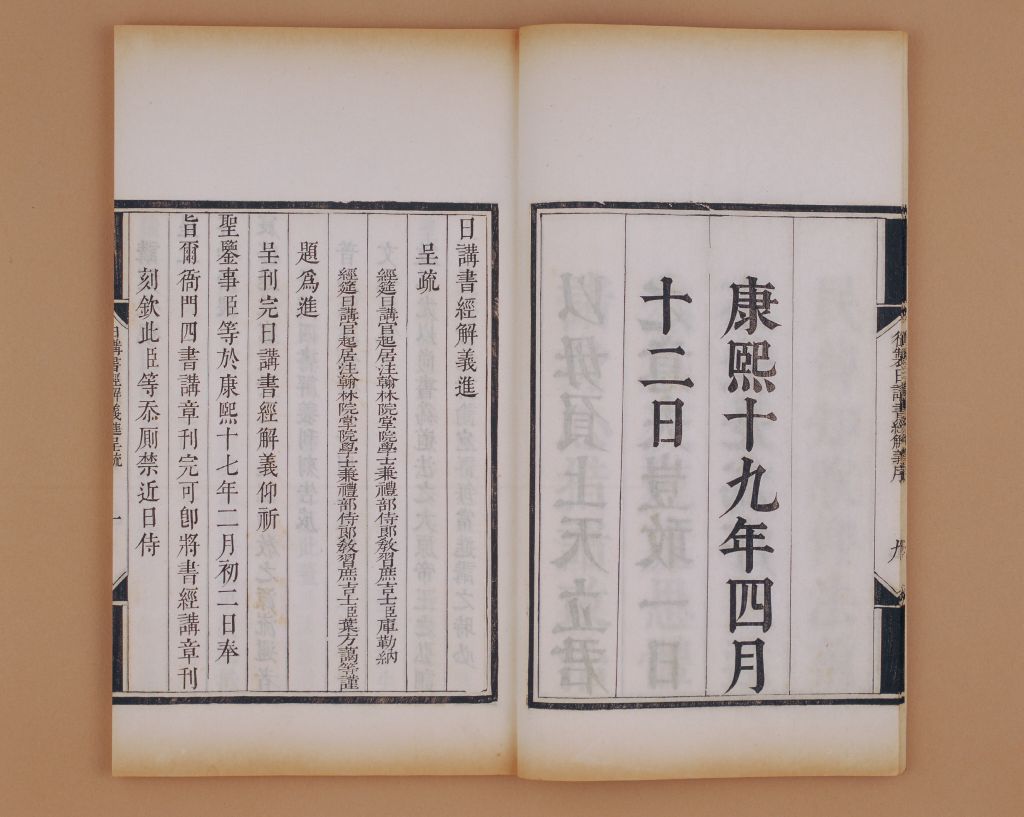 康熙十九年四月
十二日
御製日講書經解義序
九
日講書經解義進
呈疏
經筵日講官起居注翰林院掌院學士兼禮部侍郎教習庶吉士臣庫勒納
經筵日講官起居注翰林院掌院學士兼禮部侍郎教習庶吉士臣葉方藹等謹
題爲進
呈刊完日講書經解義仰祈
聖鑒事臣等於康熙十七年二月初二日奉
旨爾衙門四書講章刊完可卽將書經講章刊
刻欽此臣等忝厠禁近日侍
日講書經解義進呈疏
一